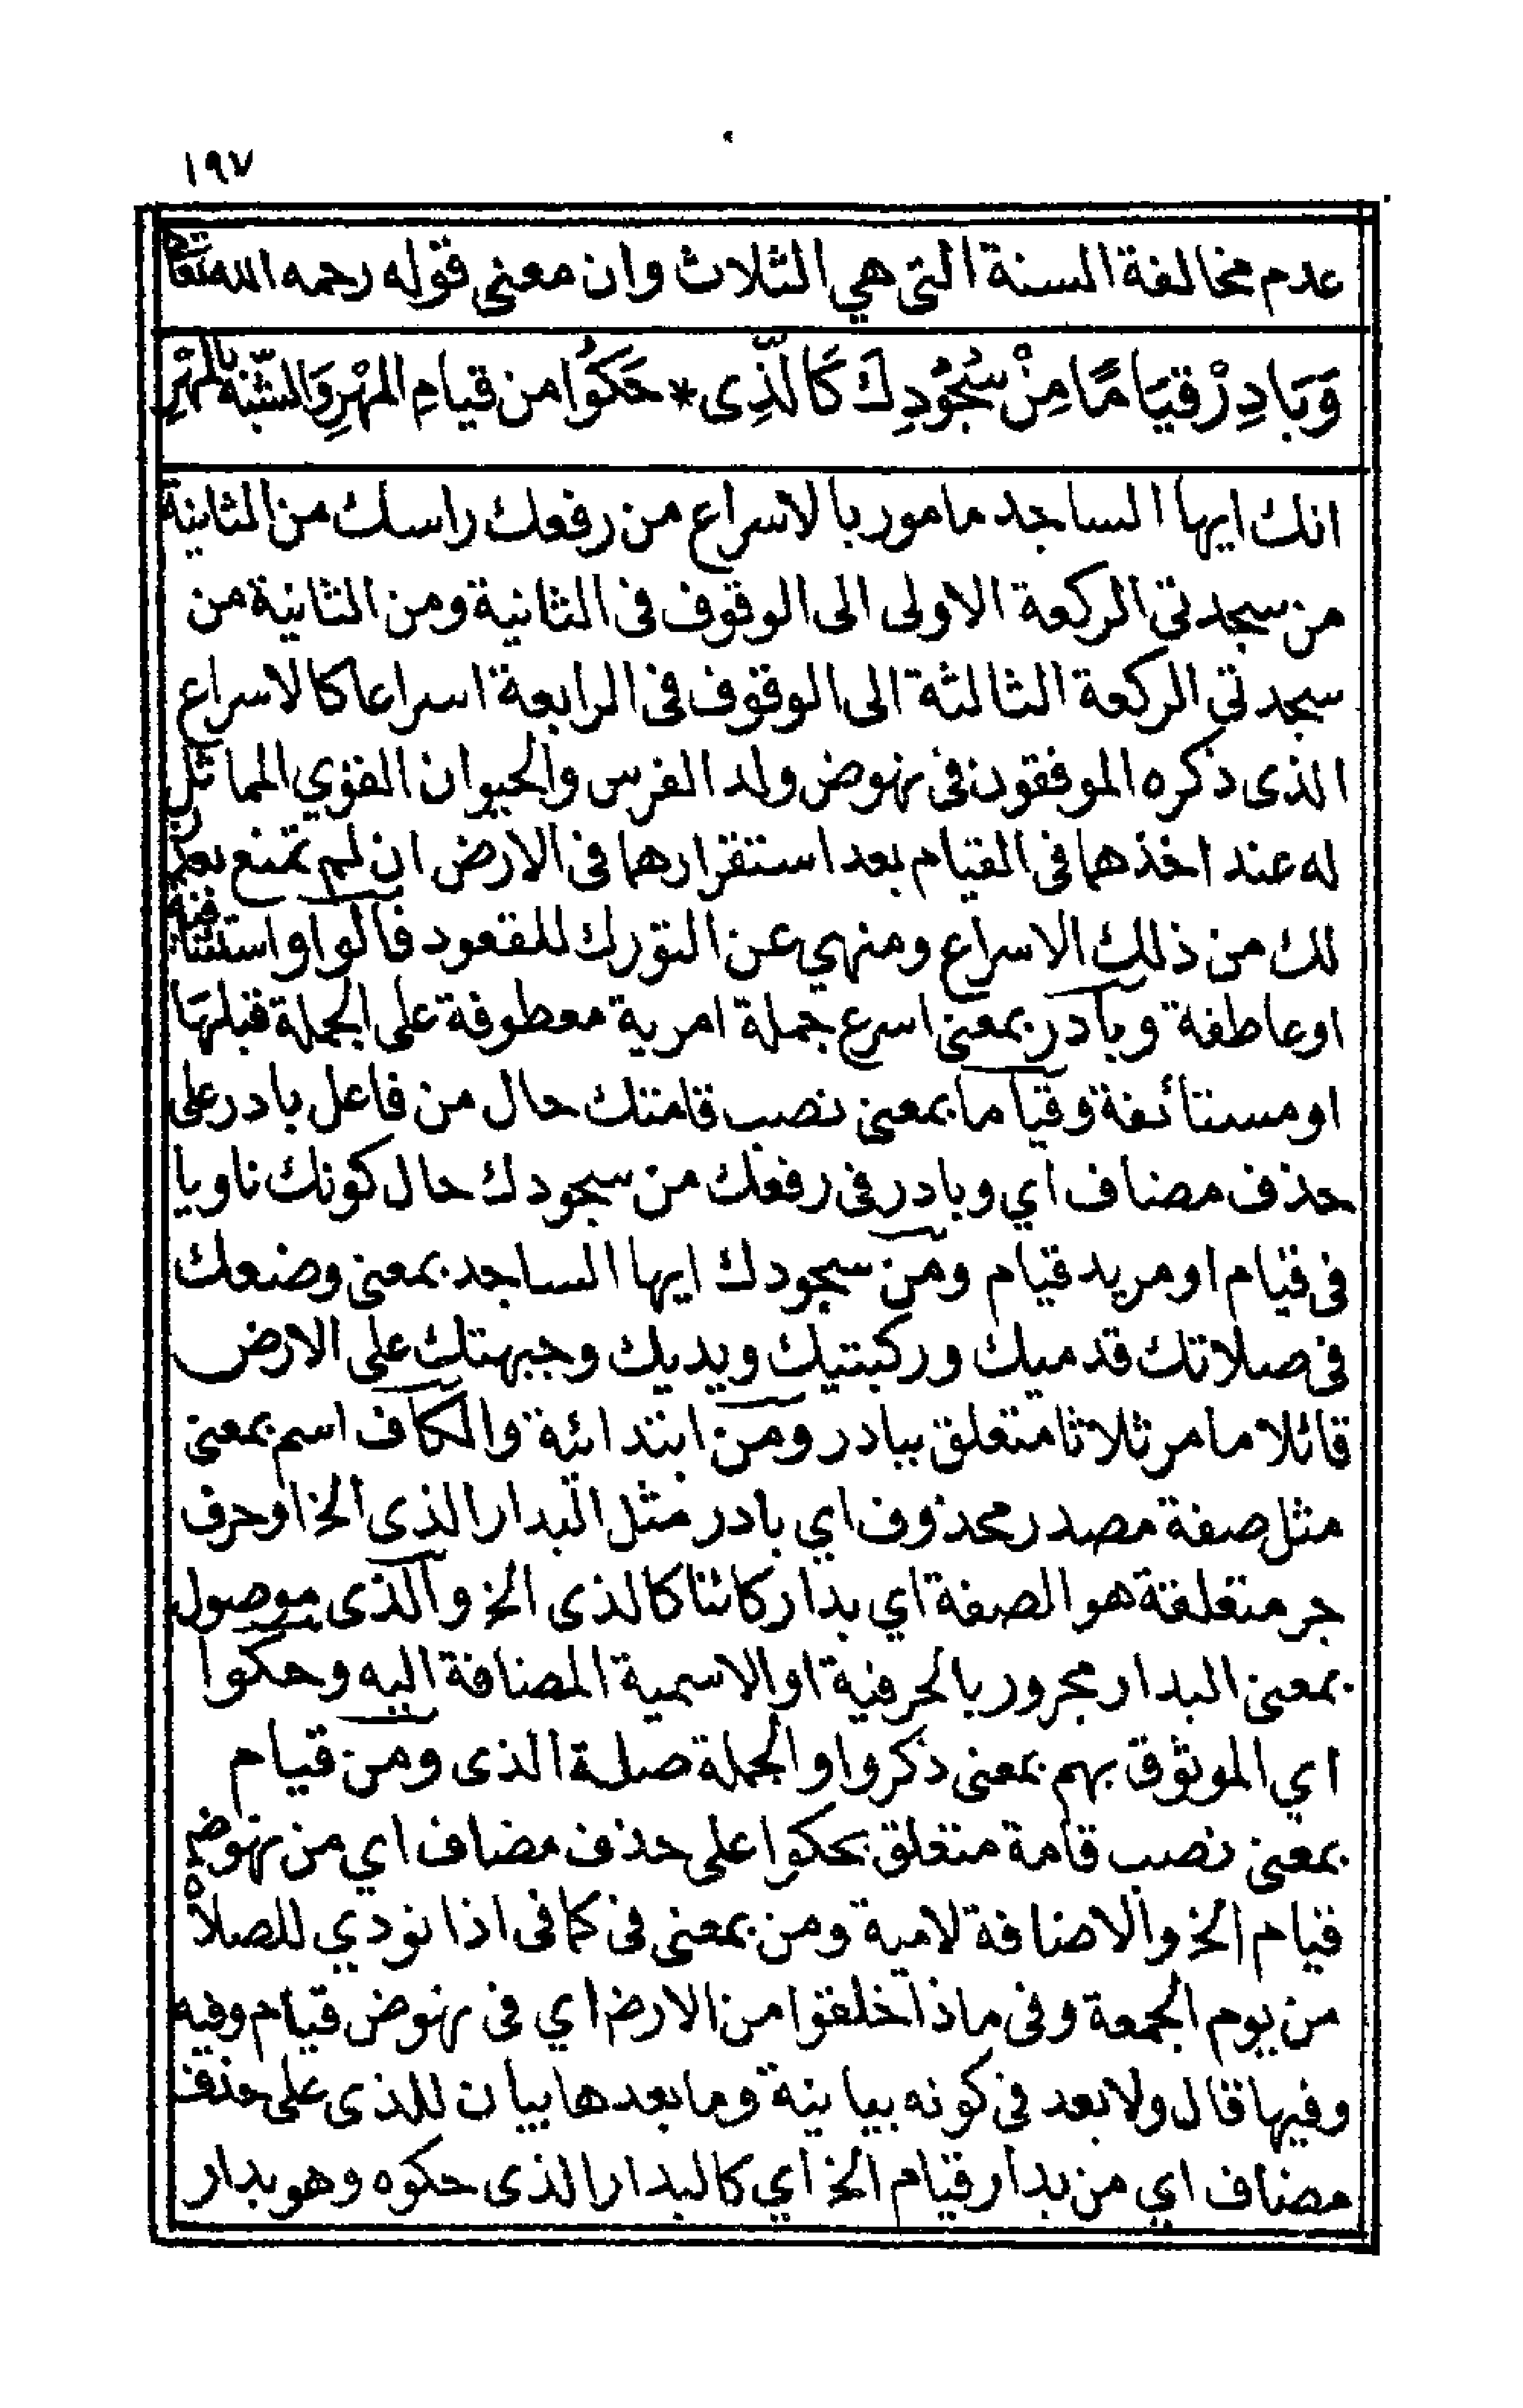 ١٩٧
عدم مخالفة السنة التى هي الثلاث وان معنى قوله رحمه الله تعالى
وَبَادِرْ قِيَامًا مِنْ سُجُودِكَ كَالَّذِى * حَكَوُا من قيامِ المهْرِ وَالشّبْهِ بالمهْرِ
انك ايها الساجد مامور بالاسراع من رفعك راسك من الثانية
من سجدتى الركعة الاولى الى الوقوف فى الثانية ومن الثانية من
سجدتي الركعة الثالثة الى الوقوف فى الرابعة اسراعا كالاسراع
الذى ذكره الموفقون فى نهوض ولد الفرس والحيوان القوي المماثل
له عند اخذهما فى القيام بعد استقرارهما فى الارض ان لم تمنع بعذر
لك من ذلك الاسراع ومنهي عن التورك للقعود فالواو استئنافية
او عاطفة وبادر بمعنى اسرع جملة امرية معطوفة على الجملة قبلهَا
او مستأنفة وقياما بمعنى نصب قامتك حال من فاعل بادر على
حذف مضاف اي وبادر فى رفعك من سجودك حال كونك ناويا
فى قيام او مريد قيام ومن سجودك ايها الساجد بمعنى وضعك
فى صلاتك قدميك وركبتيك ويديك وجبهتك على الارض
قائلا ما مر ثلاثا متعلق ببادر ومن ابتدائة والكاف اسم بمعنى
مثل صفة مصدر محذوف اي بادر مثل البدار الذى الخ او حرف
جر متعلقة هو الصفة اي بدار كائنا كالذى الخ والذى موصول
بمعنى البدار مجرور بالحرفية او الاسمية المضافة اليه وحكوا
اي الموثوق بهم بمعنى ذكروا والجملة صلة الذى ومن قيام
بمعنى نصب قامة متعلق بحكوا على حذف مضاف اي من نهوض
قيام الخ والاضافة لامية ومن بمعنى فى كما فى اذا نودي للصلاة
من يوم الجمعة وفى ماذا خلقوا من الارض اي فى نهوض قيام وفيه
وفيها قال ولا بعد فى كونه بيانية وما بعدها بيان للذى على حذف
مضاف اي من بدار قيام الخ اي كالبدار الذى حكوه وهو بدار